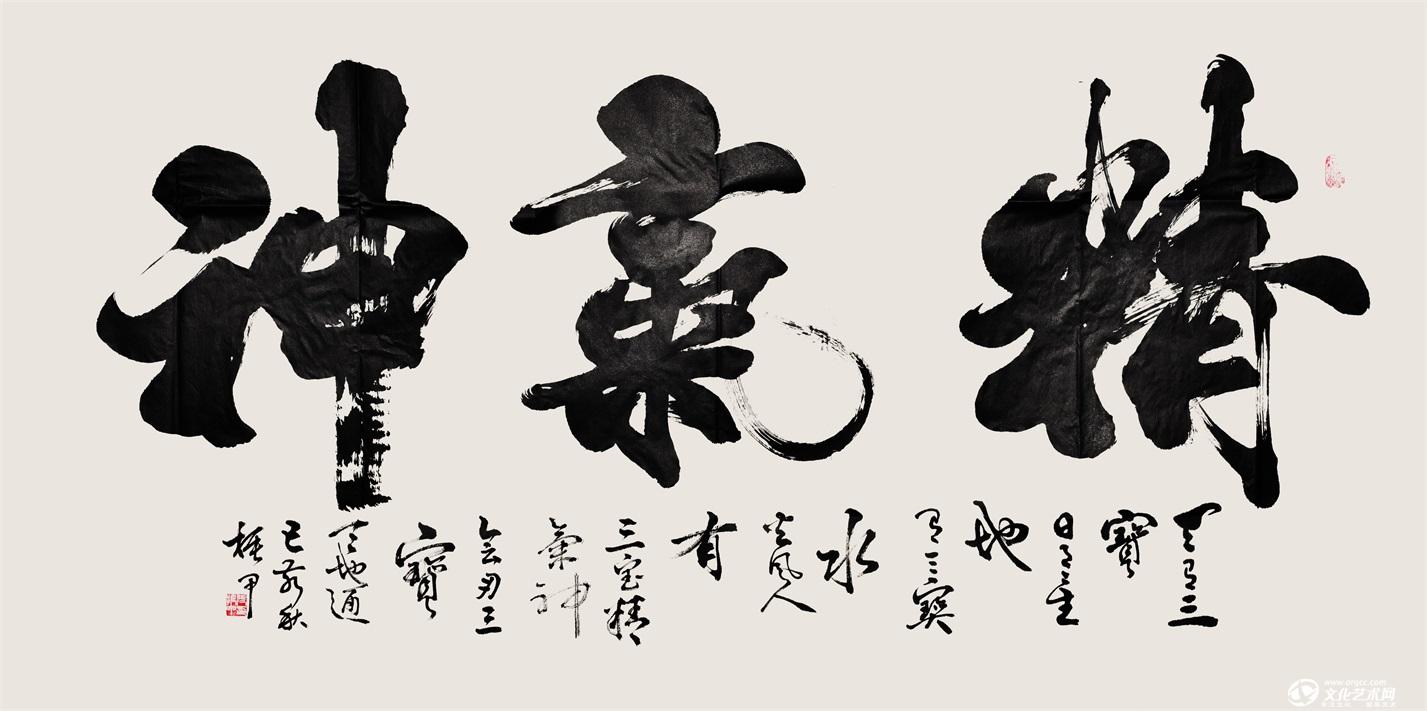 精氣神
天有三
寶
日月星
地
有三寶
水
火風人
有
三宝精
氣神
会 三
寶
天地通
己亥秋
甲
www.orgcc.com
文化艺术网